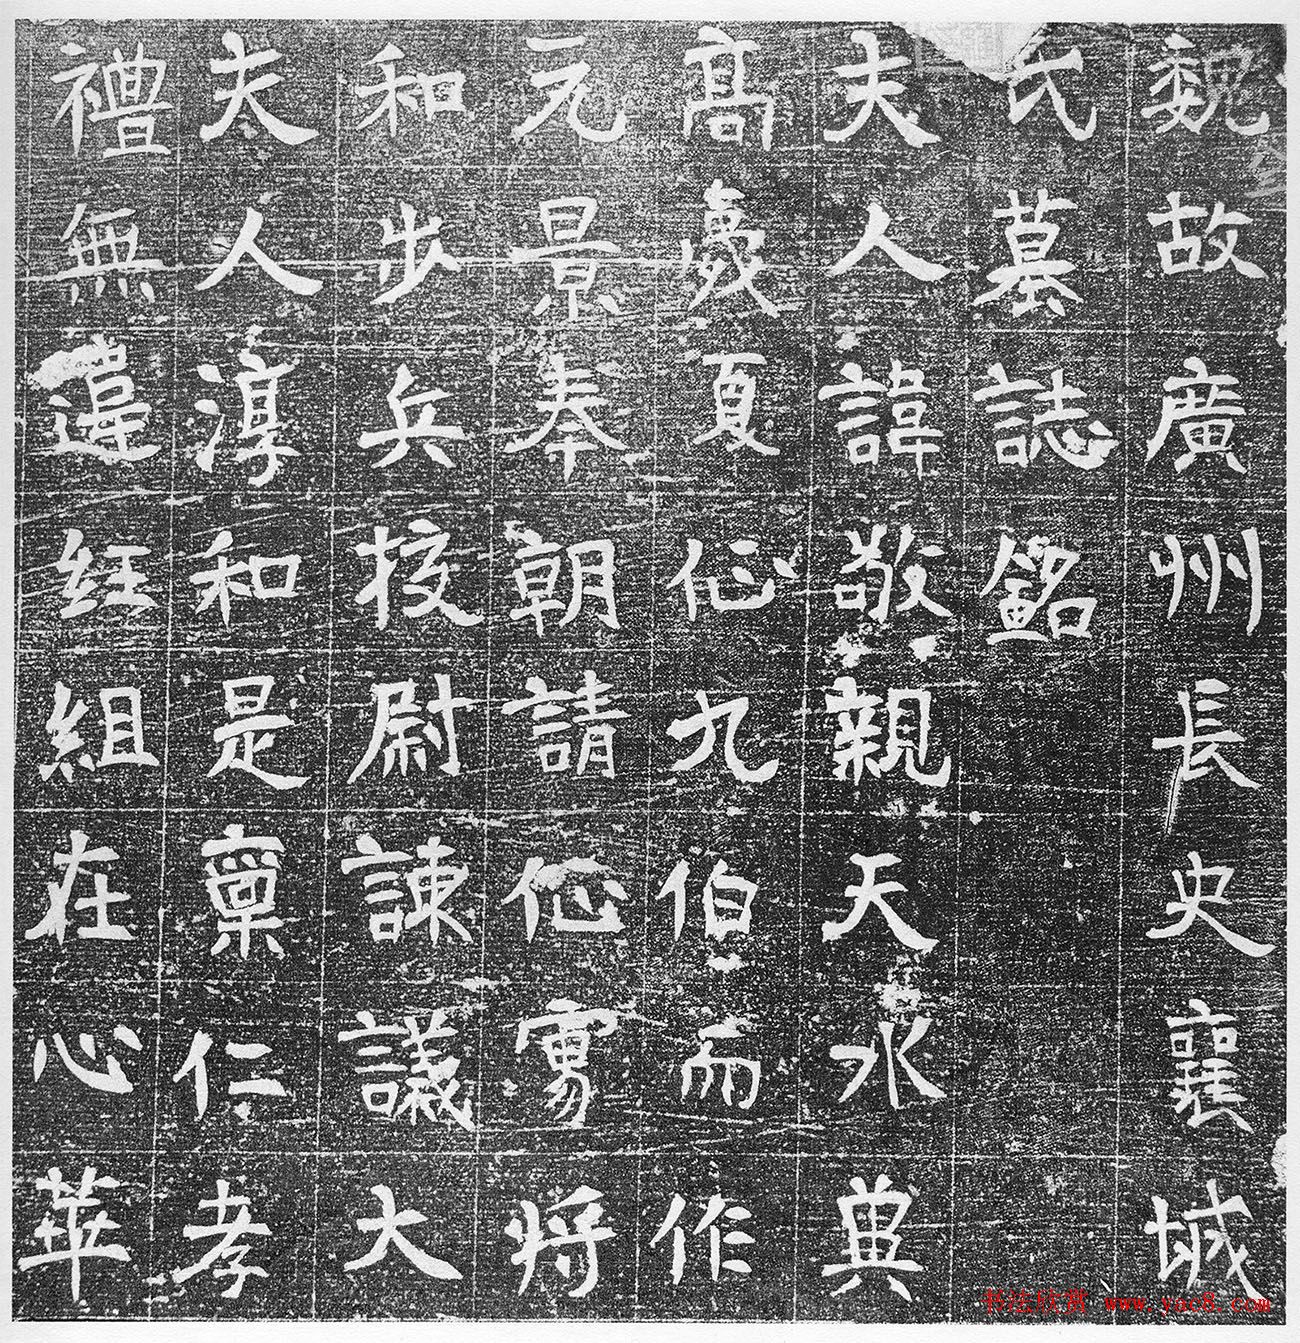 魏故廣州長史襄城
氏墓誌銘
夫人諱敬親天水兾
高歲夏以九伯而作
元景奉朝請以寡将
和步兵校尉諫議大
夫人淳和是稟仁孝
禮無違紝組在心華
书法欣赏 www.yac8.com